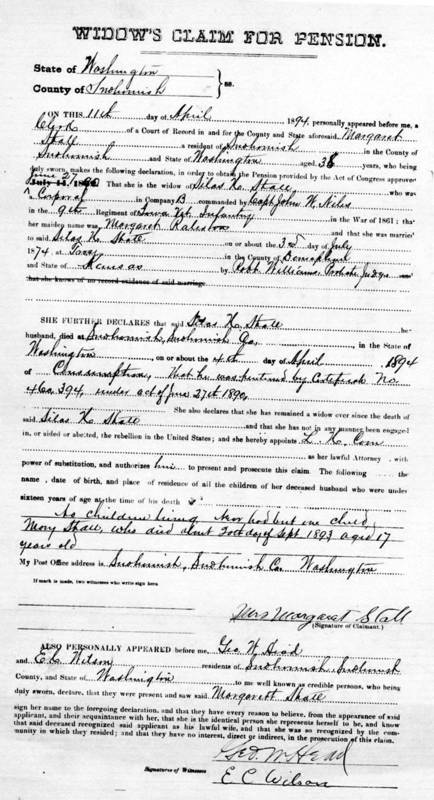 WIDOW'S CLAIM FOR PENSION.
State of Washington
County of Snohomish } ss.
ON THIS 11th day of April 1894, personally appeared before me, a
Clerk of a Court of Record in and for the County and State aforesaid, Margaret
Stall a resident of Snohomish in the County of
Snohomish and State of Washington aged 38 years, who being
duly sworn, makes the following declaration, in order to obtain the Pension provided by the Act of Congress approved
June 27, 1890 That she is the widow of Silas K. Stall who was
a Corporal in Company B commanded by Capt John W. Niles
in the 9th Regiment of Iowa Vet. Infantry in the War of 1861; that
her maiden name was Margaret Ralston and that she was married
to said Silas K. Stall on or about the 3d day of July
1874 at Troy in the County of Doniphan
and State of Kansas by Robt Williams, Probate Judge and
that she knows of no record evidence of said marriage.
SHE FURTHER DECLARES that said Silas K. Stall her
husband, died at Snohomish, Snohomish Co., in the State of
Washington, on or about the 4th day of April 1894
of Consumption, That he was pensioned by Certificate No.
460,394, under act of June 27th 1890,
She also declares that she has remained a widow ever since the death of
said Silas K. Stall and that she has not in any manner been engaged
in, or aided or abetted, the rebellion in the United States; and she hereby appoints L. K. Corn
as her lawful Attorney with
power of substitution, and authorize him to present and prosecute this claim. The following the
name, date of birth, and place of residence of all the children of her deceased husband who were under
sixteen years of age at the time of his death
No Children living. Never had but one child,
Mary Stall, who died about 20th day of Sept. 1893 aged 17
years old
My Post Office address is Snohomish, Snohomish Co. Washington
If mark is made, two witnesses who write sign here
Mrs Margaret Stall
(Signature of Claimant.)
ALSO PERSONALLY APPEARED before me Geo. W. Head
and E. C. Wilson residents of Snohomish Snohomish
County, and State of Washington to me well known as credible persons, who being
duly sworn, declare, that they were present and saw said Margarett Stall
sign her name to the foregoing declaration, and that they have every reason to believe, from the appearance of said
applicant, and their acquaintance with her, that she is the identical person she represents herself to be, and know
that said deceased recognized said applicant as his lawful wife, and that she was so recognized by the com-
munity in which they resided; and that they have no interest, direct or indirect, in the prosecution of this claim.
Geo. W. Head
Signatures of Witnesses
E C Wilson